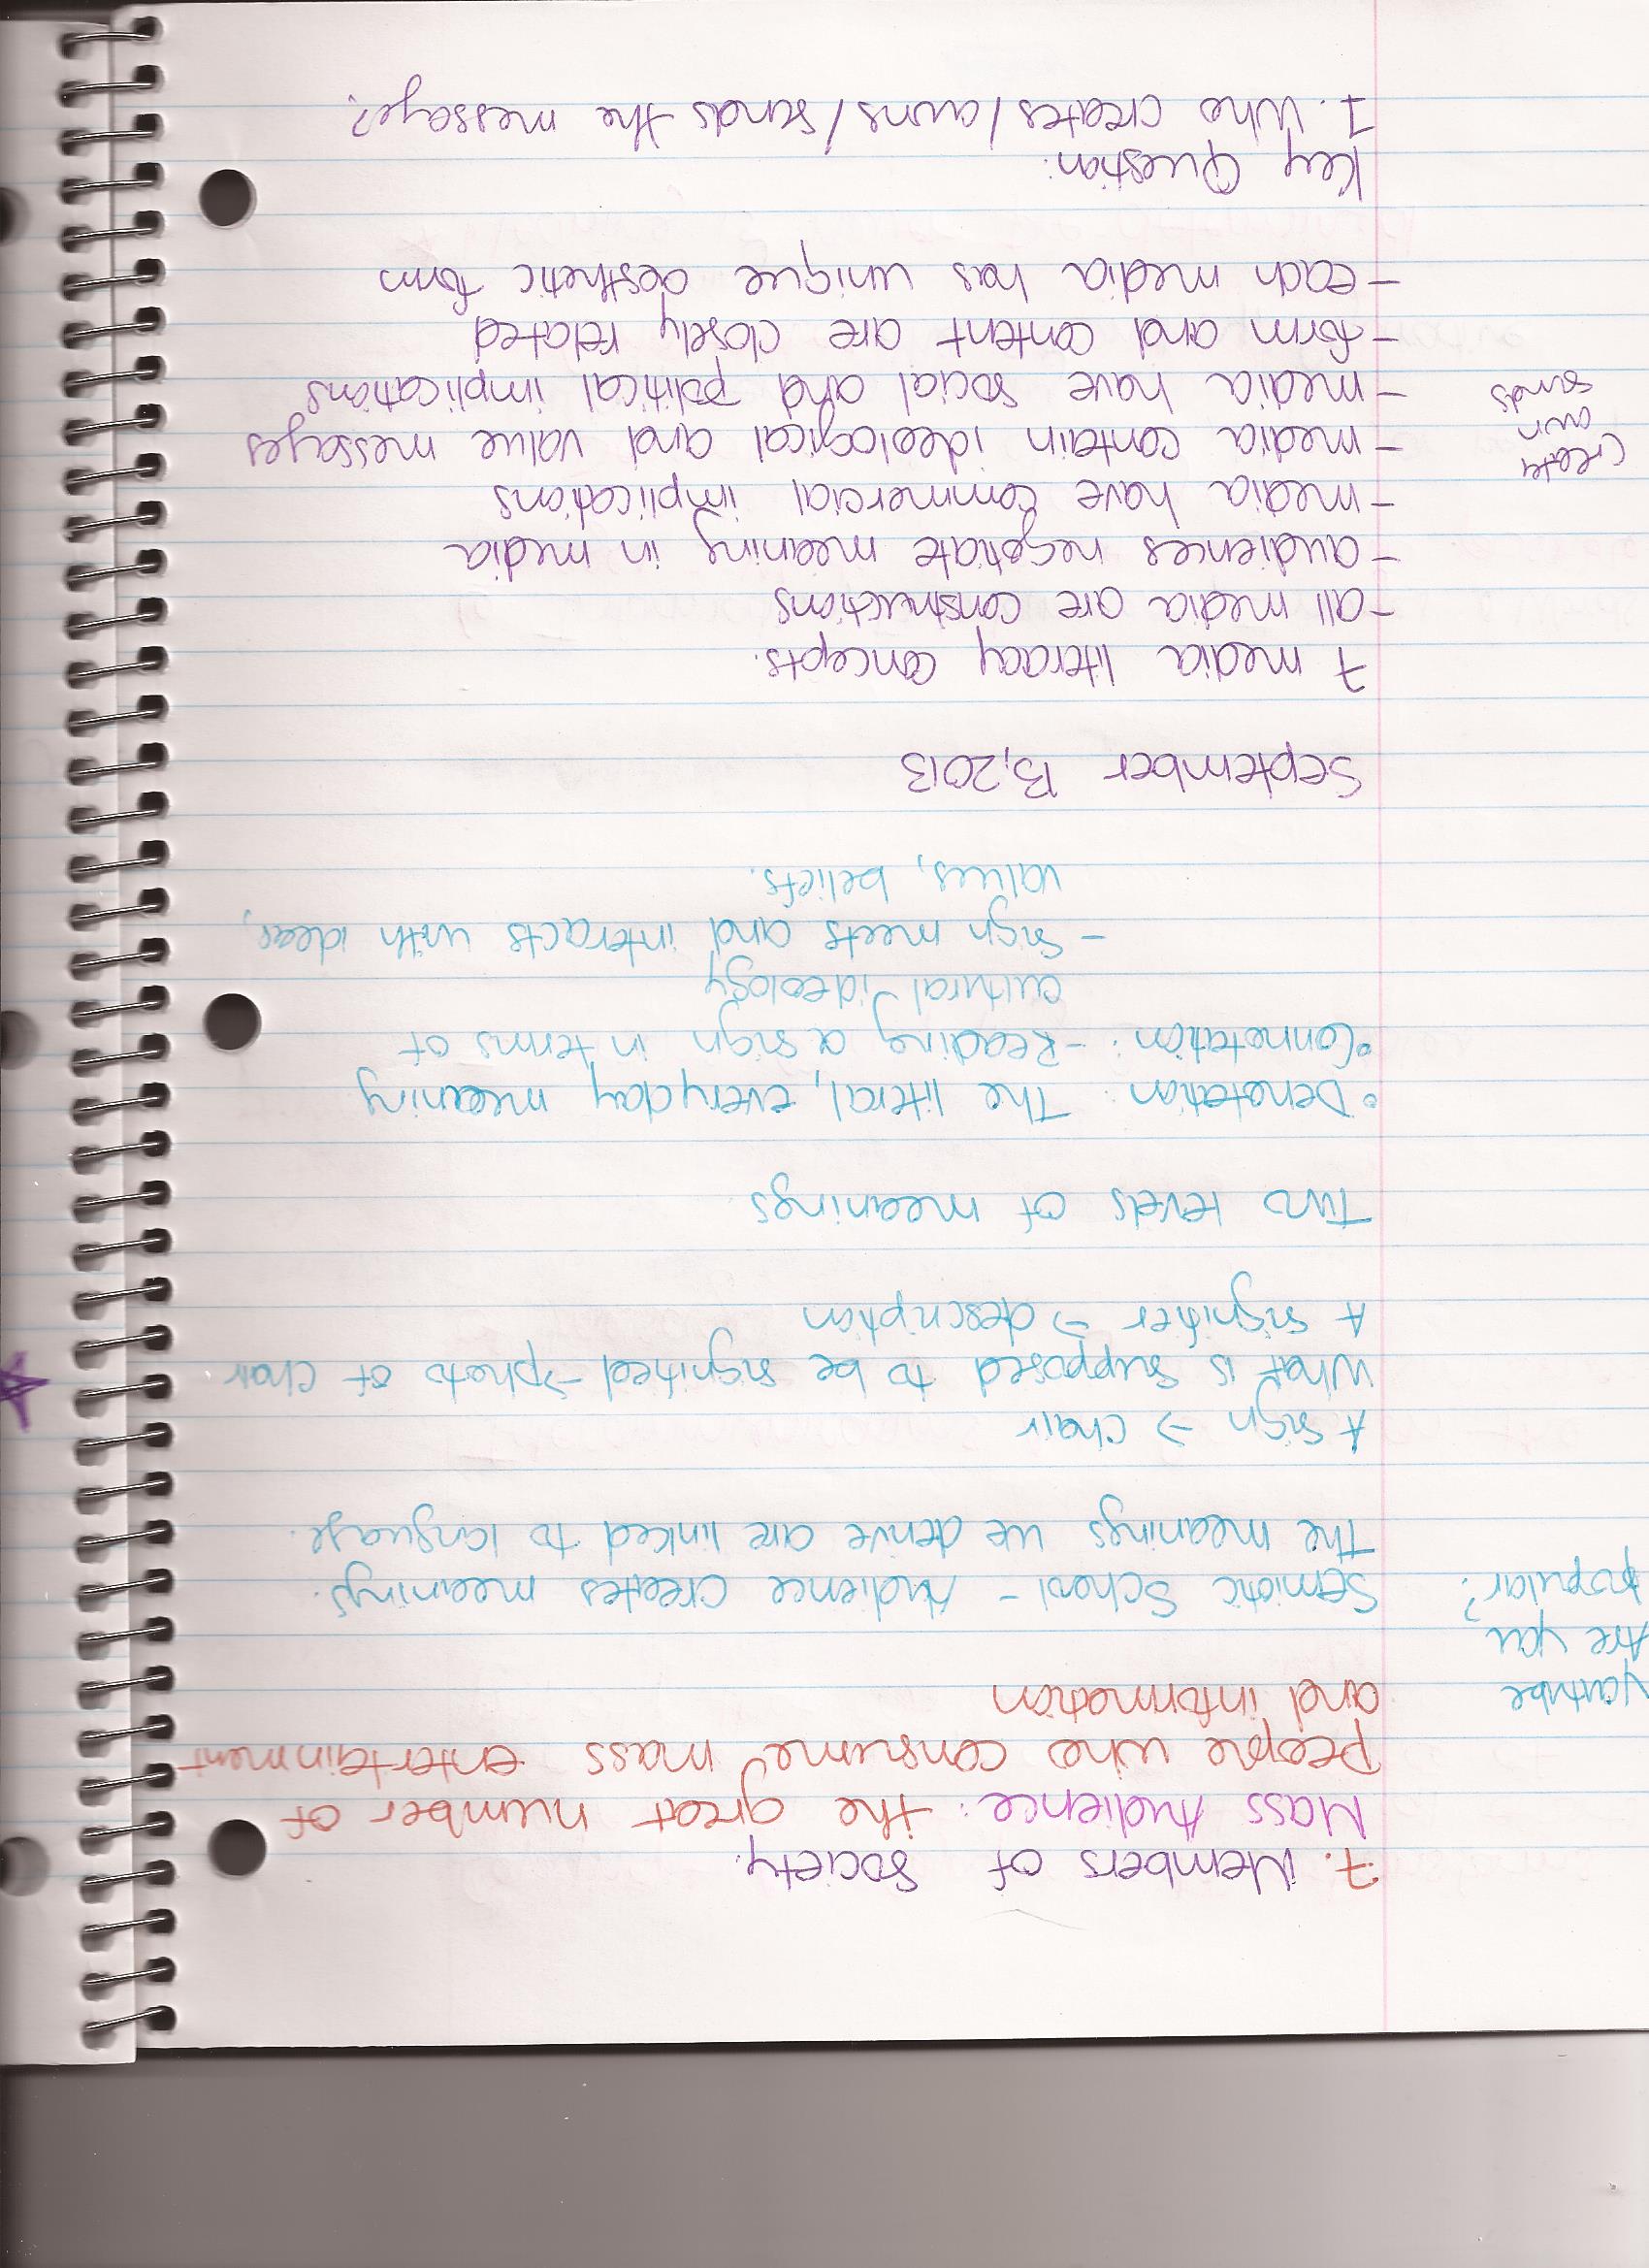 7. Members of society.
Mass Audience: the great number of
people who consume mass entertainment
and information
Youtube
Are you
popular?
Semiotic School - Audience creates meanings.
The meanings we derive are linked to language.
A sign → chair
What is supposed to be signified → photo of chair
A signifier → description
Two levels of meanings
• Denotation: The literal, everyday meaning
• Connotation: - Reading a sign in terms of
cultural ideology
- Sign meets and interacts with ideas,
values, beliefs.
September 13, 2013
7 media literacy concepts.
- all media are constructions
- audiences negotiate meaning in media
- media have commercial implications
- media contain ideological and value messages
- media have social and political implications
- form and content are closely related
- each media has unique aesthetic form
creates
own
sends
Key Question:
1. Who creates/owns/sends the message?